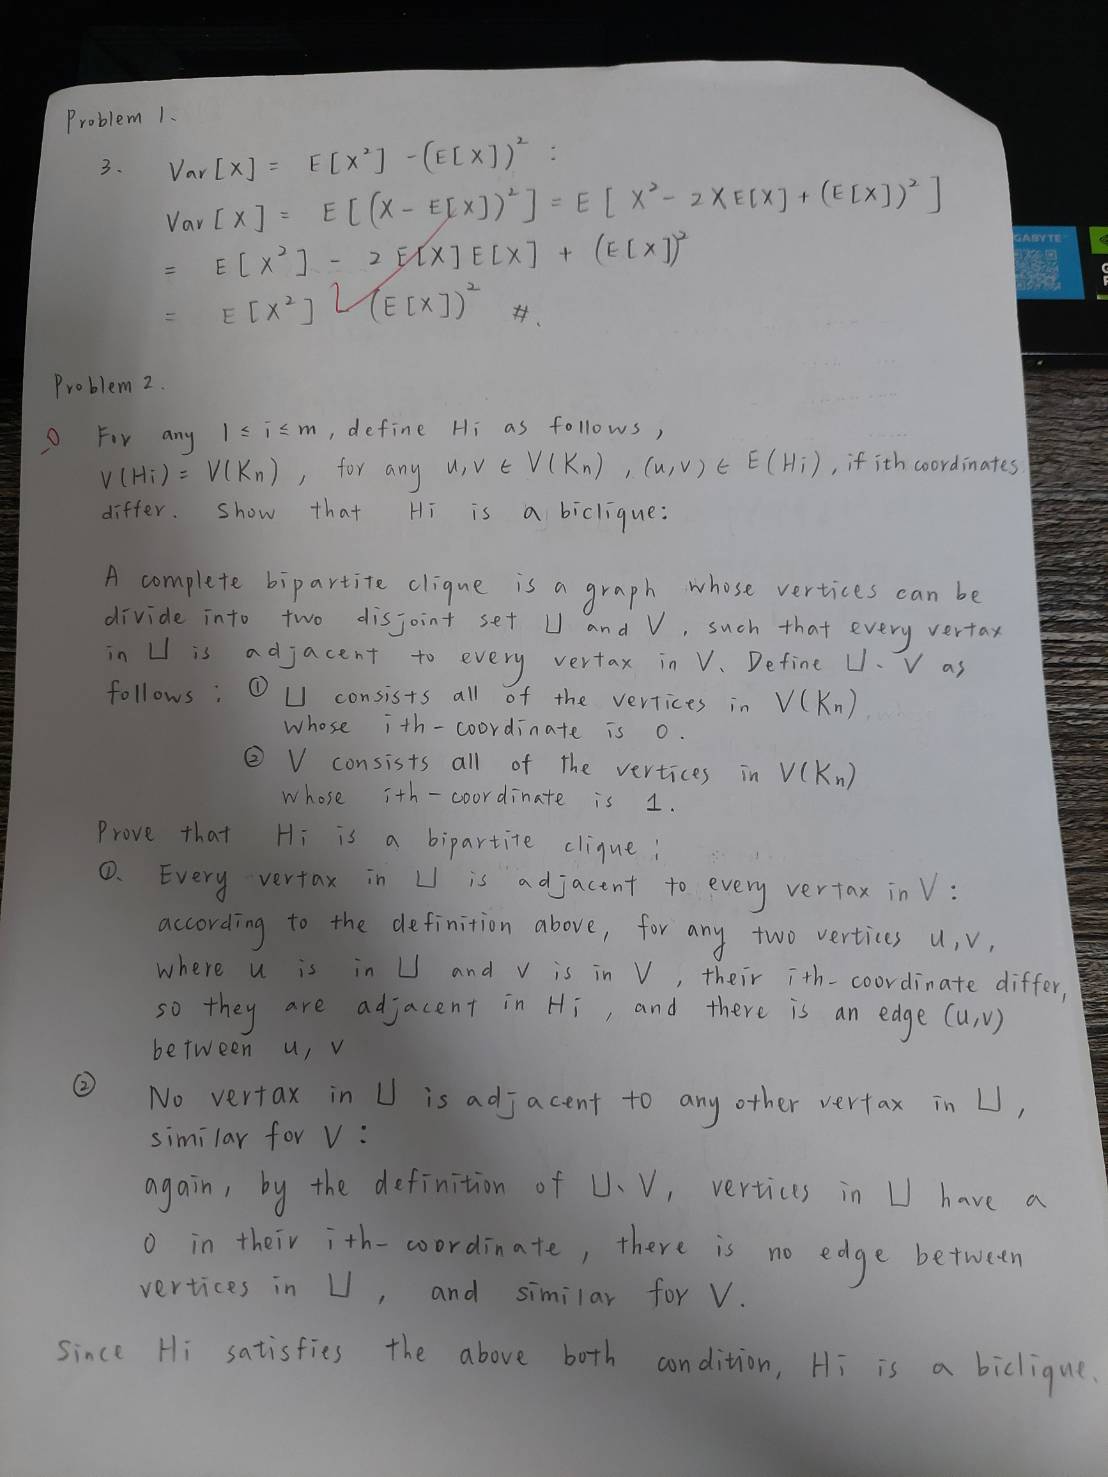 Problem 1.
3. Var[X] = E[X²] - (E[X])² :
Var[X] = E[(X - E[X])²] = E[X² - 2XE[X] + (E[X])²]
= E[X²] - 2E[X]E[X] + (E[X])²
= E[X²] - (E[X])² #.
GABYTE
Problem 2.
For any 1 ≤ i ≤ m, define Hi as follows,
V(Hi) = V(Kn), for any u,v ∈ V(Kn), (u,v) ∈ E(Hi), if ith coordinates
differ. Show that Hi is a biclique:
A complete bipartite clique is a graph whose vertices can be
divide into two disjoint set U and V, such that every vertax
in U is adjacent to every vertax in V. Define U、V as
follows: ① U consists all of the vertices in V(Kn)
whose ith-coordinate is 0.
② V consists all of the vertices in V(Kn)
whose ith-coordinate is 1.
Prove that Hi is a bipartite clique:
①. Every vertax in U is adjacent to every vertax in V:
according to the definition above, for any two vertices u,v,
where u is in U and v is in V, their ith-coordinate differ,
so they are adjacent in Hi, and there is an edge (u,v)
between u, v
② No vertax in U is adjacent to any other vertax in U,
similar for V:
again, by the definition of U、V, vertices in U have a
0 in their ith-coordinate, there is no edge between
vertices in U, and similar for V.
Since Hi satisfies the above both condition, Hi is a biclique.